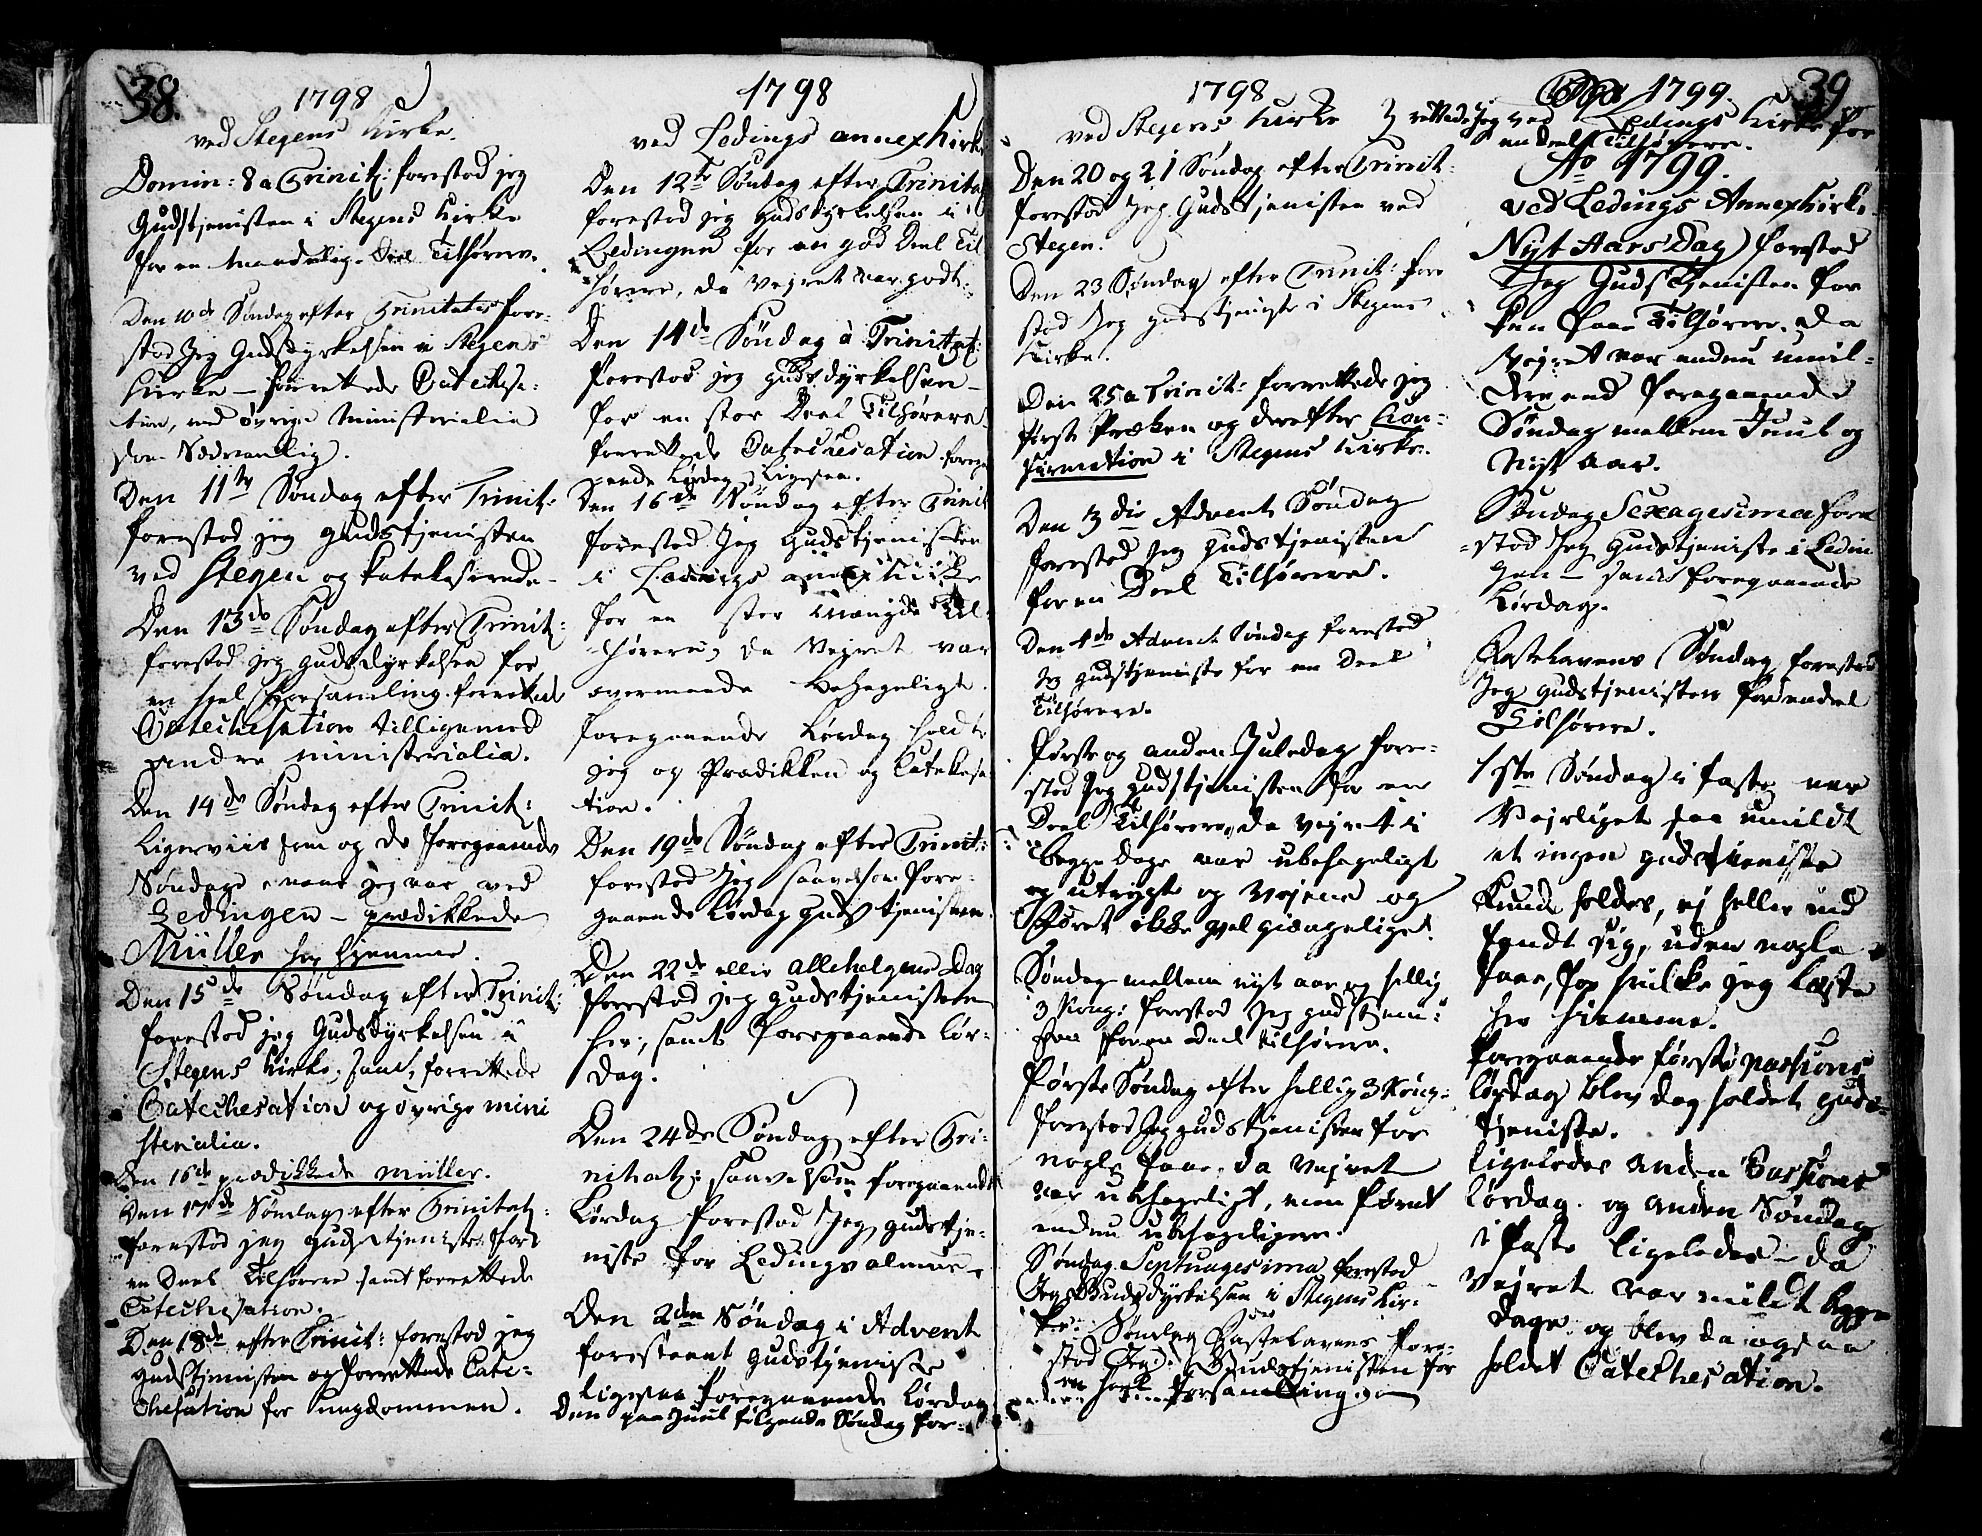 38.
1798
ved Stegens Kirke.
Domin: 8 a Trinit: forestod jeg
Gudstjenisten i Stegens Kirke
for en maadelig Deel Tilhørere.
Den 10de Søndag efter Trinitatis fore-
stod Jeg Gudsdyrkelsen i Stegens
Kirke – forrettede Catechesa-
tion, med øvrige Ministerialia
som Sædvanlig.
Den 11te Søndag efter Trinit:
forestod jeg Gudstjenisten
ved Stegen og katekiserede.
Den 13de Søndag efter Trinit:
forestod jeg Gudsdyrkelsen for
en heel Forsamling forrettede
Catechesation tilligemed
andre ministerialia.
Den 14de Søndag efter Trinit:
Ligerviis som og de foregaaende
Søndage naar jeg var ved
Ledingen – prædikkede
Müller her hjemme.
Den 15de Søndag efter Trinit:
forestod jeg Gudsdyrkelsen i
Stegens Kirke, samt forrettede
Catechesation og øvrige mini
sterialia.
Den 16de prædikkede Müller.
Den 17de Søndag efter Trinitat:
forestod jeg Gudstjenisten for
en Deel Tilhørere samt forrettede
Catechesation.
Den 18de efter Trinit: forestod jeg
Gudstjenisten og forrettede Cate-
chesation for Ungdommen.
1798
ved Ledings annex Kirke
Den 12te Søndag efter Trinita
forestod jeg Gudsdyrkelsen i
Ledingen for en god Deel Til
hørere, da Vejret var godt.
Den 14de Søndag a Trinitat:
forestod jeg Gudsdyrkelsen
for en stor Deel Tilhørere
forrettede Catechesation forega
aaende Lørdag Ligesaa.
Den 16de Søndag efter Trinit
forestod Jeg Gudstjenisten
i Ledings annex Kirke
for en stor Mængde Til-
hørere, da Vejret var
overmaade behageligt.
foregaaende Lørdag holdte
jeg og Prædikken og Catekesa
tion.
Den 19de Søndag efter Trinit:
forestod Jeg saavelsom fore-
gaaende Lørdag Gudstjenisten.
Den 22de eller Allehelgens Dag
forestod jeg Gudstjenisten
her, samt foregaaende Lør-
dag.
Den 24de Søndag efter Tri-
nitat: saavelsom foregaaende
Lørdag forestod Jeg Gudstje-
niste for Ledings almue.
Den 2den Søndag i Advent
forestaaet Gudstjeniste
ligesaa foregaaende Lørdag
Den paa Juul følgende Søndag for-
1798
ved Stegens Kirke
Den 20 og 21 Søndag efter Trinit:
forestod Jeg Gudstjenisten ved
Stegen.
Den 23 Søndag efter Trinit: fore
stod Jeg Gudstjeniste i Stegens
Kirke.
Den 25 a Trinit: forrettede jeg
først Præken og derefter Con-
firmation i Stegens Kirke.
Den 3die Advents Søndag
forestod Jeg Gudstjenisten
for en Deel Tilhørere.
Den 4de Advent Søndag forestod
Jeg Gudstjeniste for en Deel
Tilhørere.
Første og anden Juledag fore-
stod Jeg Gudstjenisten for en
Deel Tilhørere, da Vejret i
begge Dage var ubehageligt
og utrygt og Vejene og
Føret ikke vel giængeligt.
Søndag mellem nyt aar og hellig
3 Kong: forestod Jeg Gudstjeni-
sten for en Deel Tilhørere.
Første Søndag efter hellig 3 Kong:
forestod Jeg Gudstjenisten for
nogle faae, da Vejret
var ubehageligt, men Føret
endnu ubehageligere.
Søndag Septuagesima forestod
Jeg Gudsdyrkelsen i Stegens Kir-
ke. Søndag Fastelavens fore-
stod Jeg Gudstjenisten for
en heel Forsamling
39
1799.
rettede Jeg ved Ledings Kirke for
en deel Tilhørere.
Ao 1799.
ved Ledings Annex Kirke
Nyt Aars Dag forestod
Jeg Gudstjenisten for
ken faae Tilhørere, da
Vejret var endnu umil-
dere end foregaaende
Søndag mellem Juul og
Nyt Aar.
Søndag Sexagesima fore
stod Jeg Gudstjeniste i Ledin
gen – samt foregaaende
Lørdag.
Fastelavens Søndag forestod
Jeg Gudstjenisten for endeel
Tilhørere.
1ste Søndag i faste var
Vejrliget saa umildt
at ingen Gudstjeniste
kunde holdes, ej heller ind
fandt sig, uden nogle
faae, for hvilke jeg læste
her hjemme.
foregaaende første passions
Lørdag blev dog holdet Guds-
tjeniste.
Ligeledes anden Passions
Lørdag og anden Søndag
i Faste ligeledes – da
Vejret var mildt begge
Dage og blev da ogsaa
holdet Catechesation.